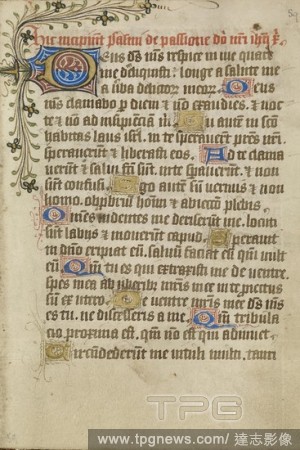 Hic incipiunt psalmi de passione dni nri ihu x.
Deus ds ms respice in me quare
me dereliquisti longe a salute mea
verba delictor meor. Deus
ms clamabo p diem et no exaudies et noc
te et no ad insipiencia m. Tu autem in sco
habitas laus isrl. In te speraverut pres nri
speraverut et liberasti eos. Ad te clama
verut et salvi fci sut in te speraverut et non
sunt confusi. Ego aute su vermis et non
homo obpbriu hoim et abiectio plebis.
Omes videntes me deriserut me locuti
sut labijs et moverut capud. Speravit
in dno eripiat eu salvu faciat eu qm vult
eu. Qm tu es qui extraxisti me de ventre
spes mea ab uberib mris mee in te proiectus
su ex utero. De ventre mris mee ds ms
es tu ne discesseris a me. Qm tribula
cio proxima est qm no est qui adiuvet.
Circudederunt me vituli multi tauri
TPG
www.tpgnews.com/ 達志影像